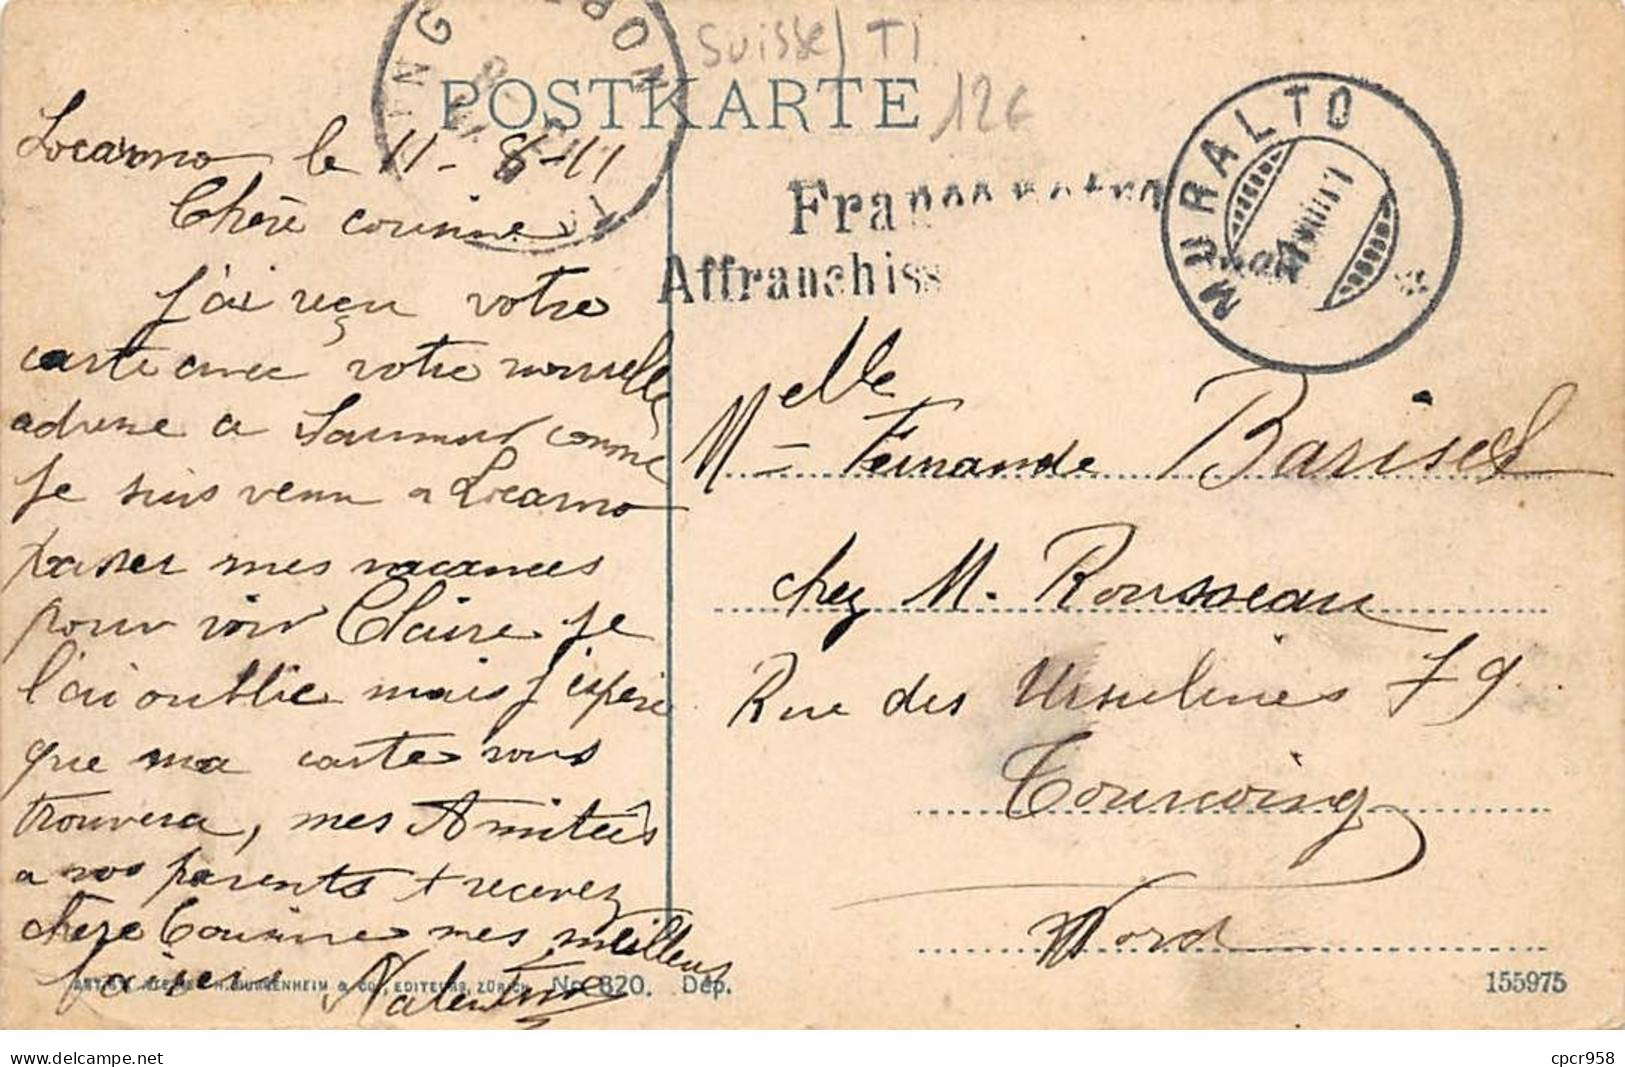 Suisse / TI
12€
POSTKARTE
MURALTO
Affranchiss
Locarno le 11-8-11
Chère cousine
J'ai reçu votre
carte avec votre nouvelle
adresse a Saumur comme
je suis venu a Locarno
passer mes vacances
pour voir Claire je
l'ai oublie mais j'espère
que ma carte vous
trouvera, mes Amitiés
a vos parents + recevez
chere Cousine mes meilleurs
baisers Valentine
Melle Fernande Barisel
chez M. Rousseau
Rue des Ursulines 79
Tourcoing
Nord
H. GUGGENHEIM & Co., EDITEURS, ZÜRICH No. 820. Dép.
155975
delcampe.net
cpcr958